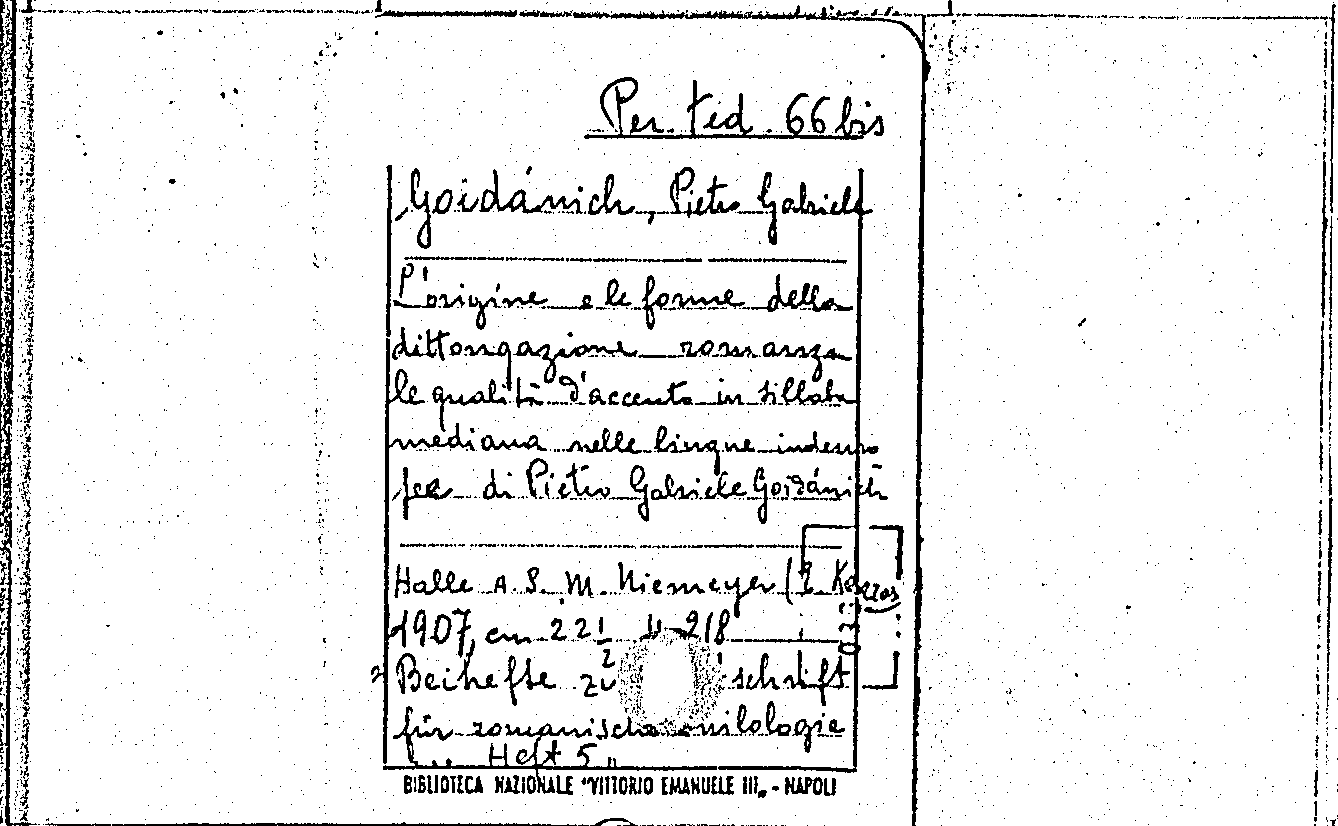 Per. ted. 66 bis
Goidánich, Pietro Gabriele
L'origine e le forme della
dittongazione romanza
le qualità d'accento in sillaba
mediana nelle lingue indeuro
pee di Pietro Gabriele Goidánich
Halle A. S. M. Niemeyer (E. Ka
1907, cm 22 1/2 218
Beihefte zu schrift
für romanische philologie
Heft 5
BIBLIOTECA NAZIONALE "VITTORIO EMANUELE III„ - NAPOLI